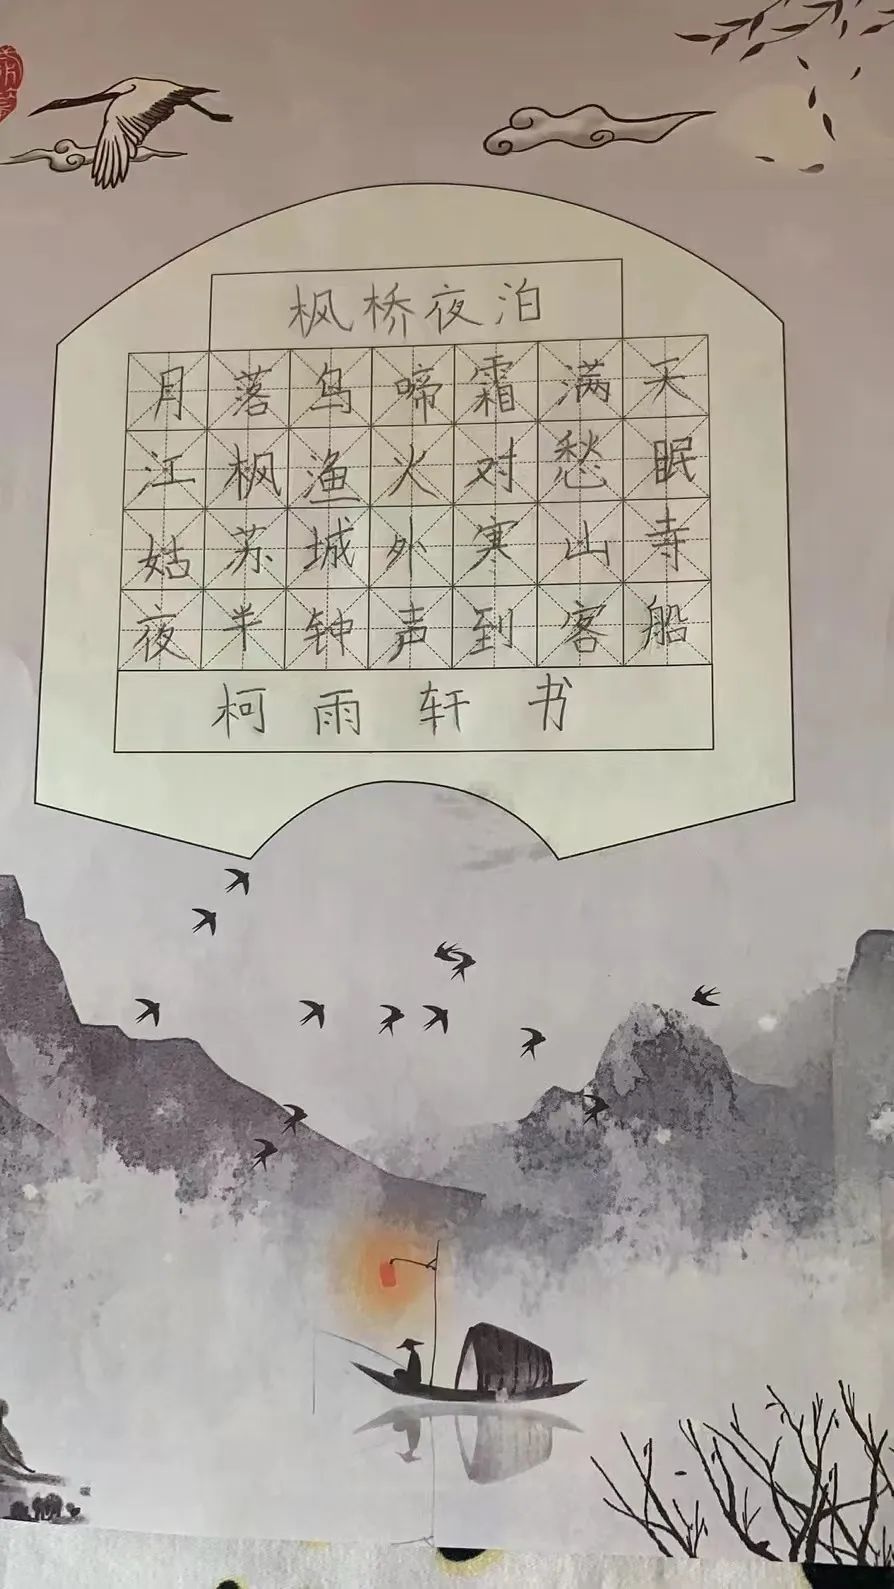 枫桥夜泊
月落鸟啼霜满天
江枫渔火对愁眠
姑苏城外寒山寺
夜半钟声到客船
柯雨轩书